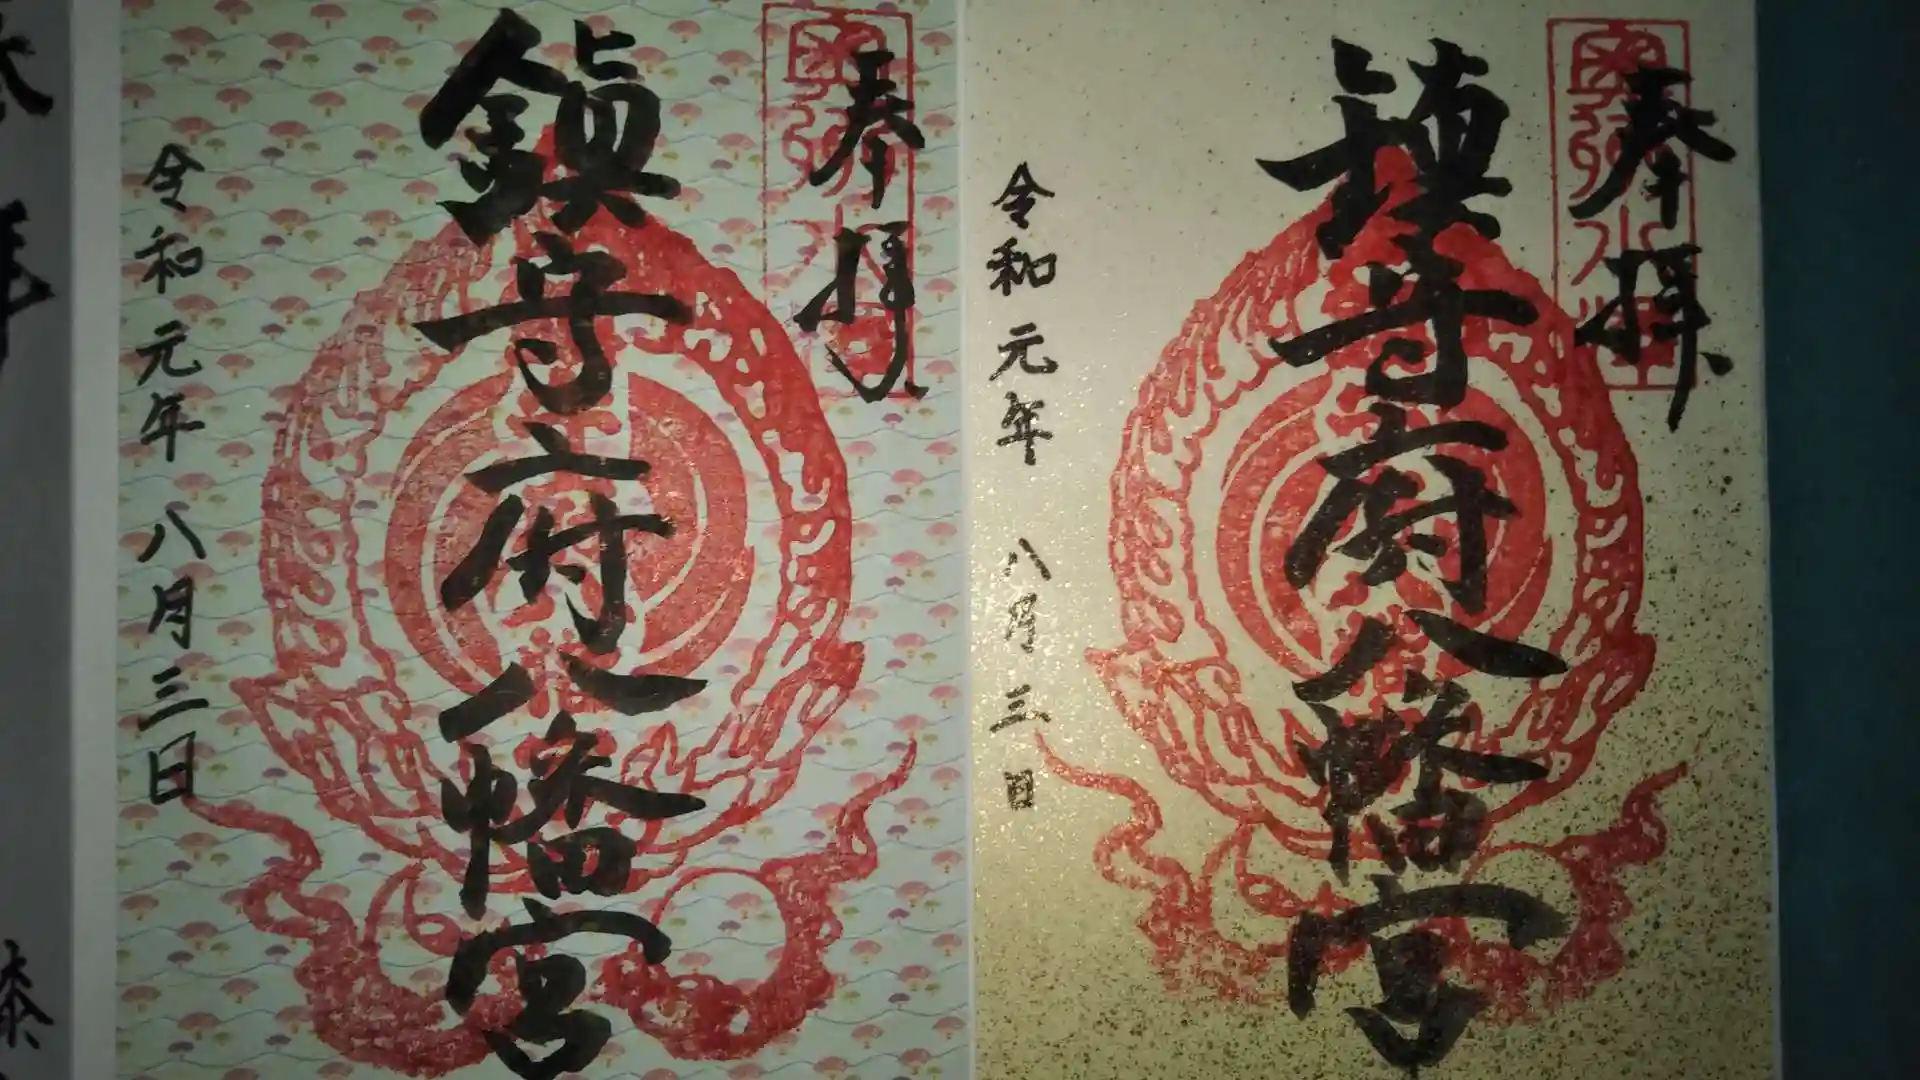 奉拝
鎭守府八幡宮
令和元年 八月三日
奉拝
鎮守府八幡宮
令和元年 八月三日